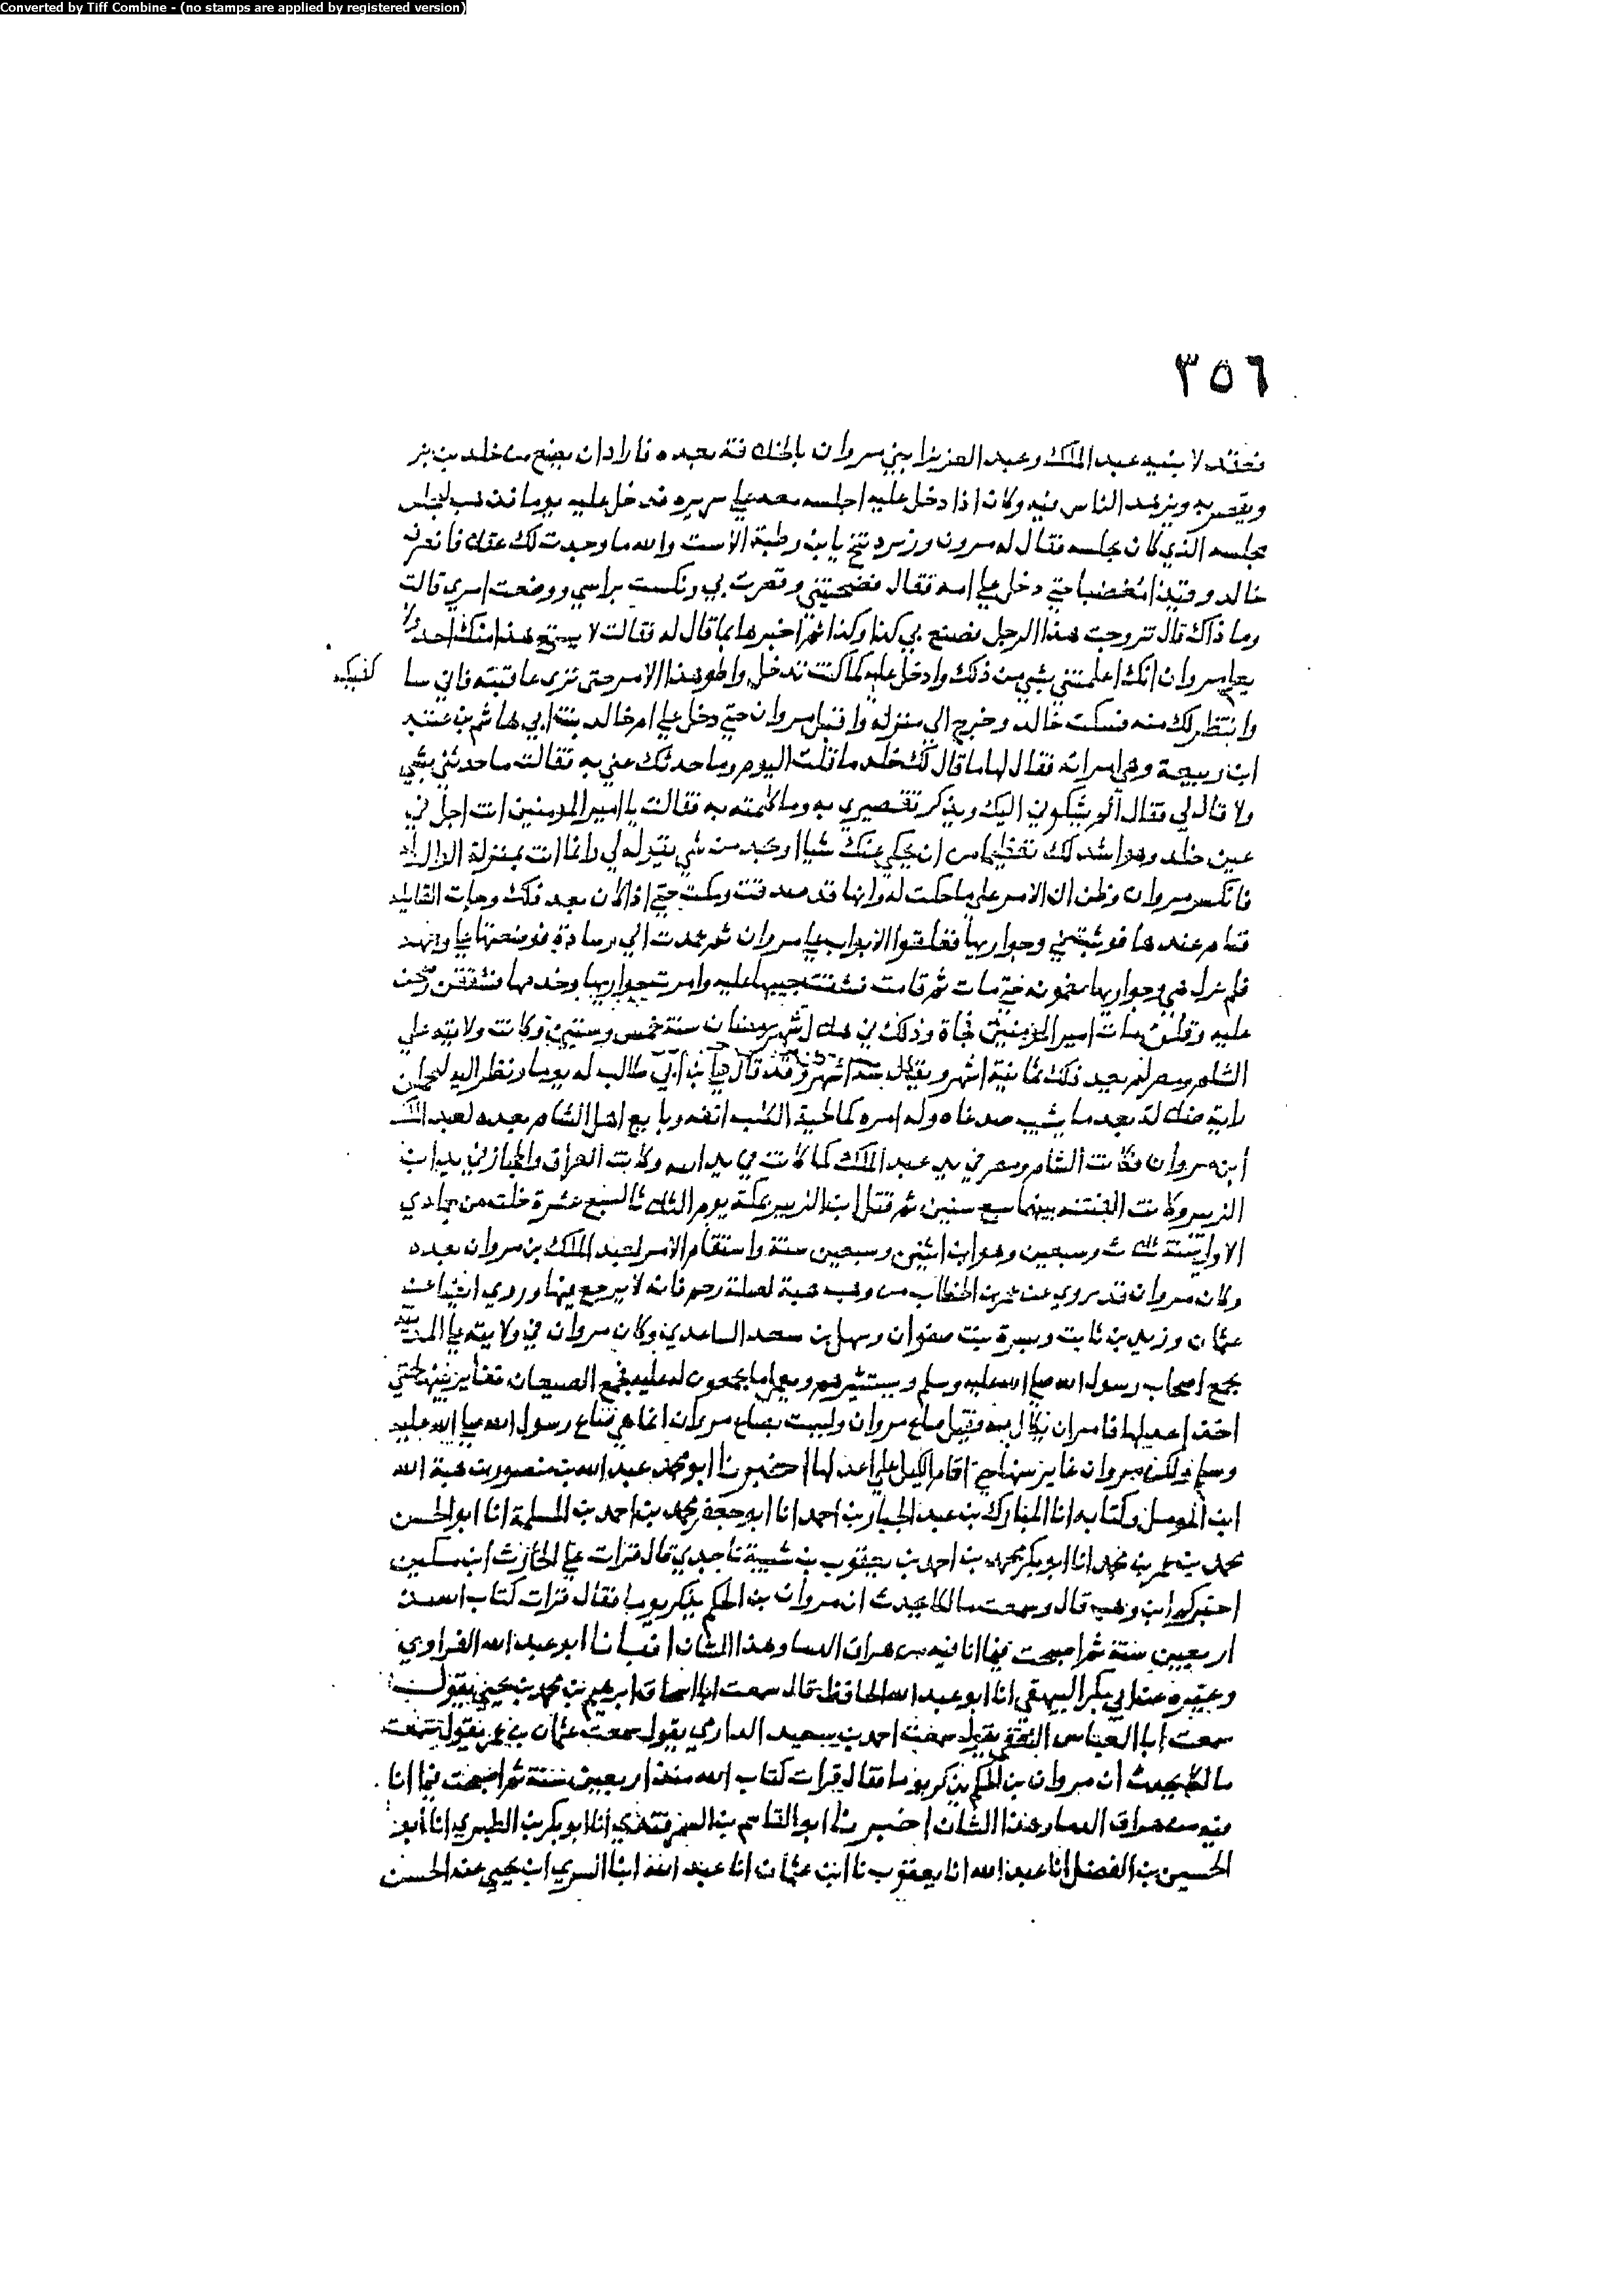 Converted by Tiff Combine - (no stamps are applied by registered version)
٣٥٦
فعقد لابنيه عبد الملك وعبد العزيز ابني مروان بالخلافة بعده فاراد ان يضع من خلد بن يز
ويقصر به ويزهد الناس فيه وكان اذا دخل عليه اجلسه معه علي سريره فدخل عليه يوما فذهب ليجلس
مجلسه الذي كان يجلسه فقال له مرون وزبره تنح يا بن رطبة الاست والله ما وجدت لك عقلا فانصرف
خالد وقتيذ مغضبا حتي دخل علي امه فقال فضحتيني وقصرت بي ونكست براسي ووضعت امري قالت
وما ذاك قال تزوجت هذا الرجل فصنع بي كذا وكذا ثم اخبرها بما قال له فقالت لا يسمع هذا منك احد ولا
يعلم مروان انك اعلمتني بشي من ذلك وادخل علي كما كنت تدخل واطو هذا الامر حتي تري عاقبته فاني سا كفيكه
وانتظر لك منه فسكت خالد وخرج الي منزله واقبل مروان حتي دخل علي ام خالد بنت ابي هاشم بن عتبة
ابن ربيعة وهي امراته فقال لها ما قال لك خلد ما قلت اليوم وما حدثك عني به فقالت ما حدثني بشي
ولا قال لي فقال الم يشكوني اليك ويذكر تقصيري به وما كلمته به فقالت يا امير المومنين انت اجل في
عين خلد وهو اشد لك تعظيما من ان يحكي عنك شيا او يجد من شي تقوله لي وانما انت بمنزلة الوالد له
فانكسر مروان وظن ان الامر علي ما حكت له وانها قد صدقت ومكث حتي اذا كان بعد ذلك وحانت القايلة
فنام عندها فوثبت هي وجواريها فغلقوا الابواب علي مروان ثم عمدت الي وسادة فوضعتها علي وجهه
فلم تزل هي وجواريها يغموته حتي مات ثم قامت فشقت جيبها عليه وامرت جواريها وخدمها فشققن وصحن
عليه وقلن مات امير المومنين فجاة وذلك في هلال شهر رمضان سنة خمس وستين وكانت ولايته علي
الشام ومصر لم يعد ذلك ثمانية اشهر ويقال ستة اشهر وقد قال علي بن ابي طالب له يوما ونظر اليه ليحملن
راية ضلالة بعد ما يشيب صدغاه وله امره كلحسة الكلب انفه وبايع اهل الشام بعده لعبد الملك
ابن مروان فكانت الشام ومصر في يد عبد الملك كما كانت في يد ابيه وكانت العراق والحجاز في يد ابن
الزبير وكانت الفتنة بينهما سبع سنين ثم قتل ابن الزبير بمكة يوم الثلثا لسبع عشرة خلت من جمادي
الاولي سنة ثلاث وسبعين وهو ابن اثنين وسبعين سنة واستقام الامر لعبد الملك بن مروان بعده
وكان مروان قد روي عن عمر بن الخطاب من وهب هبة لصلة رحم فانه لا يرجع فيها وروي ايضا عن
عثمان وزيد بن ثابت وبسرة بنت صفوان وسهل بن سعد الساعدي وكان مروان في ولايته علي المدينة
يجمع اصحاب رسول الله صلي الله عليه وسلم ويستشيرهم ويعمل بما يجمعون له عليه فجمع الصيعان فعاير بينها حتي
اخذ اعدلها فامر ان يكال به فقيل صاع مروان وليست بصاع مروان انما هي صاع رسول الله صلي الله عليه
وسلم ولكن مروان عاير بينها حتي اقام الكيل علي اعدلها اخبرنا ابو محمد عبد الله بن منصور بن هبة الله
ابن الموصلي وكتابه انا المبارك بن عبد الجبار بن احمد انا ابو جعفر محمد بن احمد بن المسلمة انا ابو الحسن
محمد بن عمر بن محمد انا ابو بكر محمد بن احمد بن يعقوب بن شيبة نا جدي قال قرات علي الحارث ابن مسكين
اخبركم ابن وهب قال وسمعت مالكا يحدث ان مروان بن الحكم يذكر يوما فقال قرات كتاب الله منذ
اربعين سنة ثم اصبحت فيما انا فيه من هراق الدما وهذا الشان انبانا ابو عبد الله الفراوي
وغيره عن ابي بكر البيهقي انا ابو عبد الله الحافظ قال سمعت ابا اسحاق ابرهيم بن محمد بن يحيي يقول
سمعت ابا العباس الثقفي يقول سمعت احمد بن سعيد الدارمي يقول سمعت عثمان بن عمر يقول سمعت
مالكا يحدث ان مروان بن الحكم يذكر يوما فقال قرات كتاب الله منذ اربعين سنة ثم اصبحت فيما انا
فيه من هراق الدما وهذا الشان اخبرنا ابو القاسم بن السمرقندي انا ابو بكر بن الطبري انا ابو
الحسين بن الفضل انا عبد الله انا يعقوب نا ابن عثمان انا عبد الله انا السري ابن يحيي عن الحسن